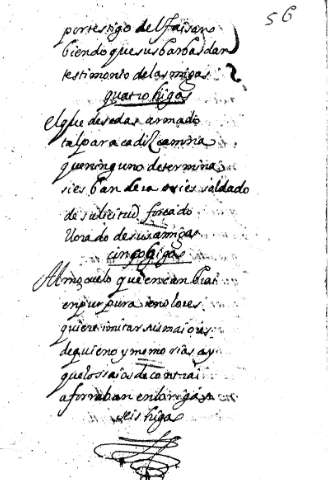 56
por testigo del faisan o
biendo que sus barbas dan
testimonio de las migas
quatro higas
el que de sedas armado
tal para cadiz camina
que ninguno determina
si es o si es soldado
de su forçado
llorado de sus amigas
cinco higas
Al moçuelo que en cambiar
en purpura
quiere imitar sus maiores
de quien o y memorias ay
que los saios de contrai
aforraban en lorigas
seis higas